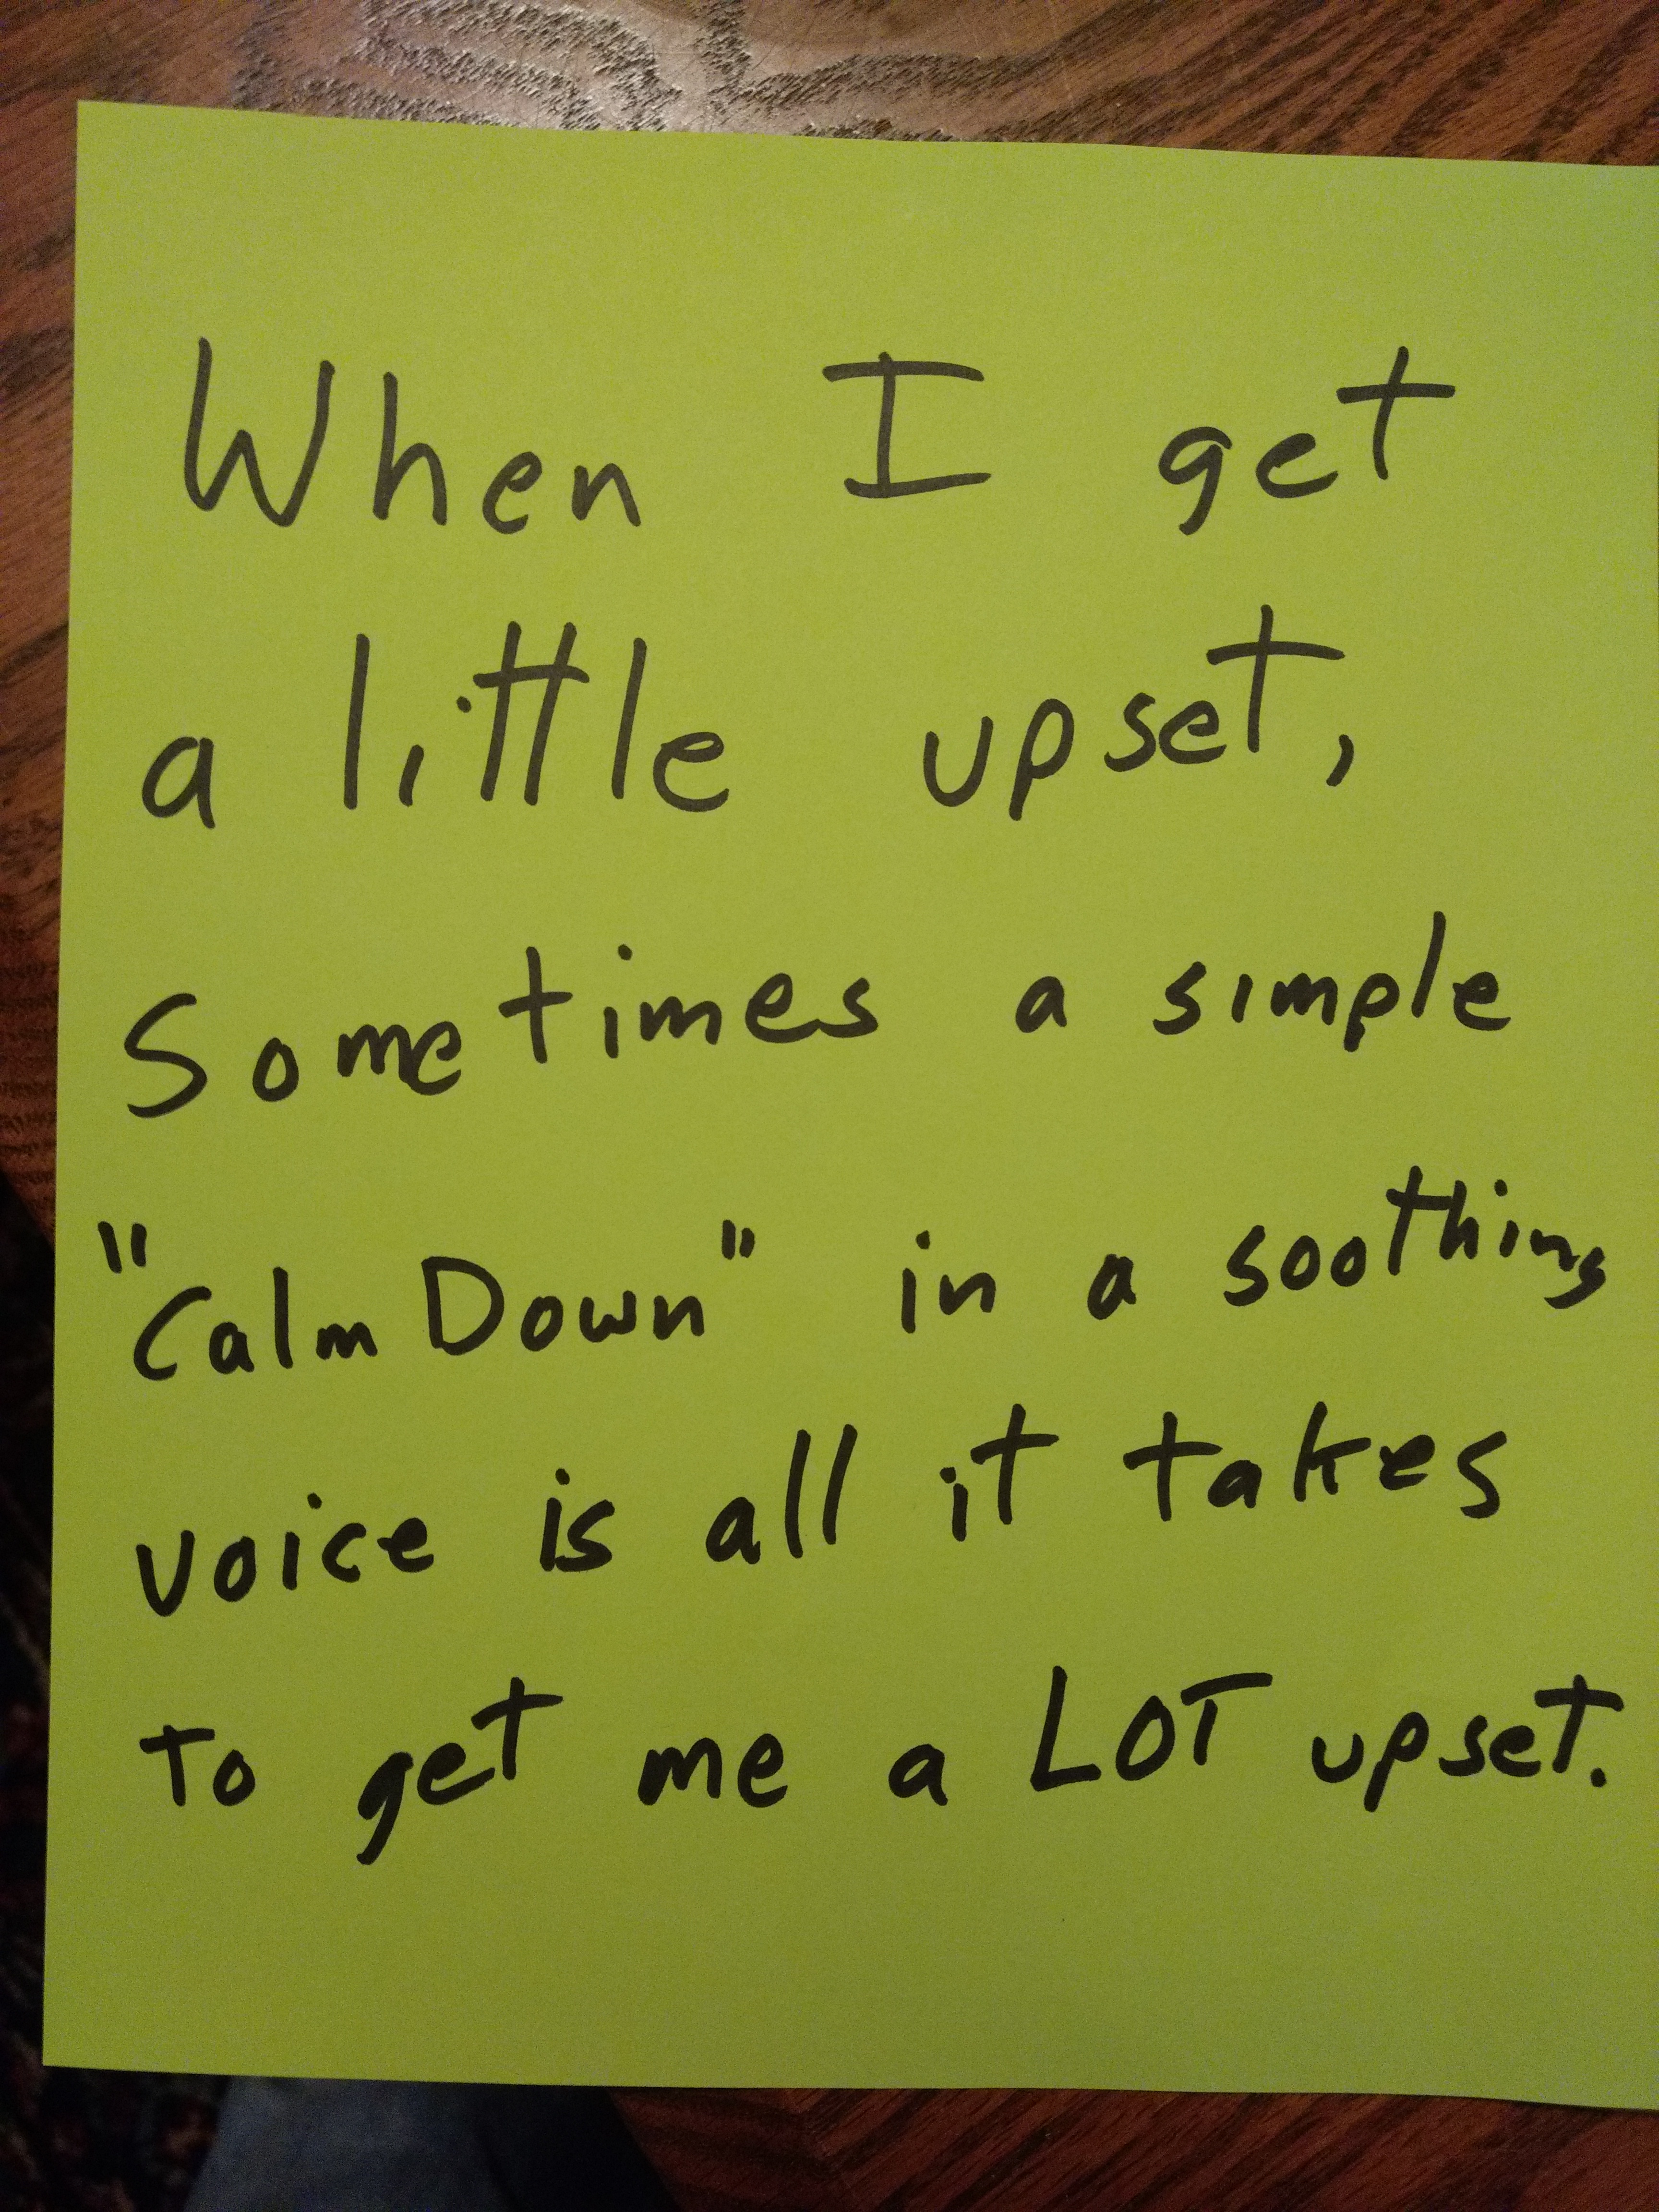 When I get
a little upset,
Sometimes a simple
"Calm Down" in a soothing
voice is all it takes
To get me a LOT upset.